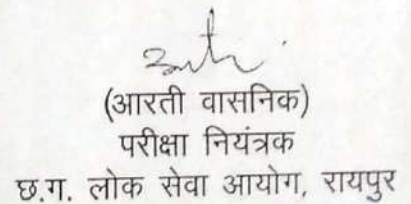 (आरती वासनिक)
परीक्षा नियंत्रक
छ.ग. लोक सेवा आयोग, रायपुर